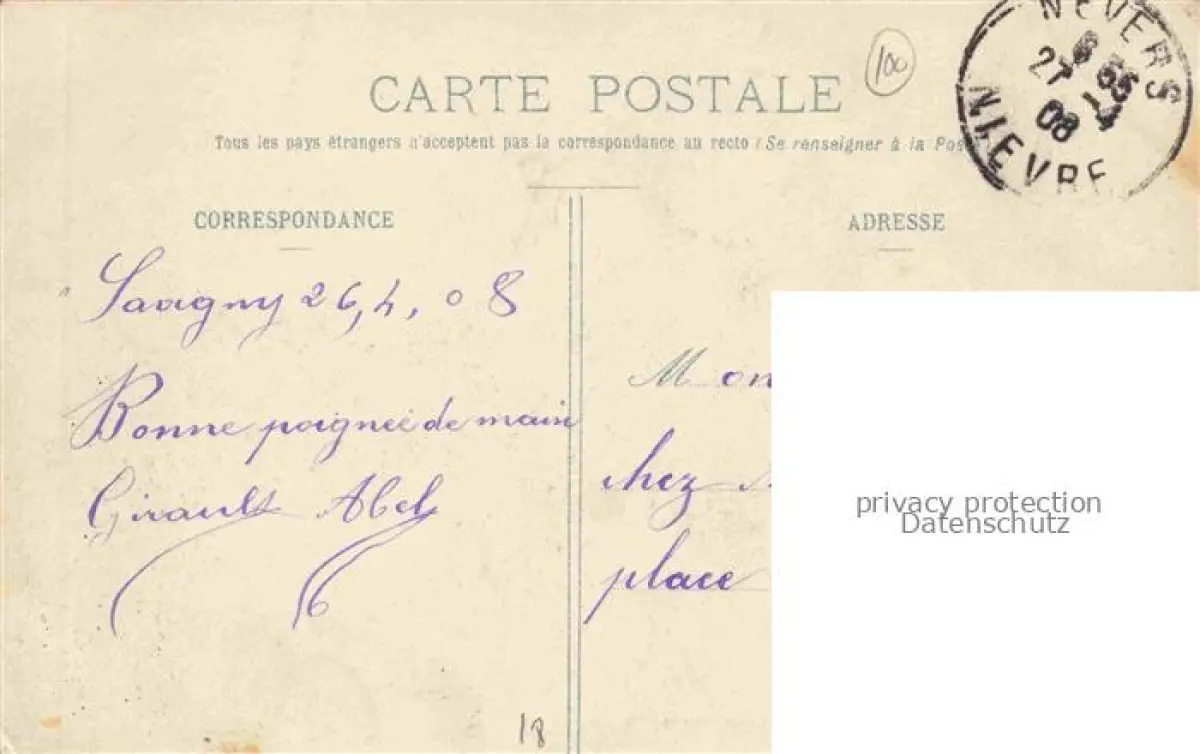 100
CARTE POSTALE
Tous les pays étrangers n'acceptent pas la correspondance au recto (Se renseigner à la Pos
NEVERS
6 55
27 - 4
08
NIEVRE
CORRESPONDANCE
Savigny 26, 4, 08
Bonne poignée de main
Girault Abel
18
ADRESSE
Mon
chez
place
privacy protection
Datenschutz